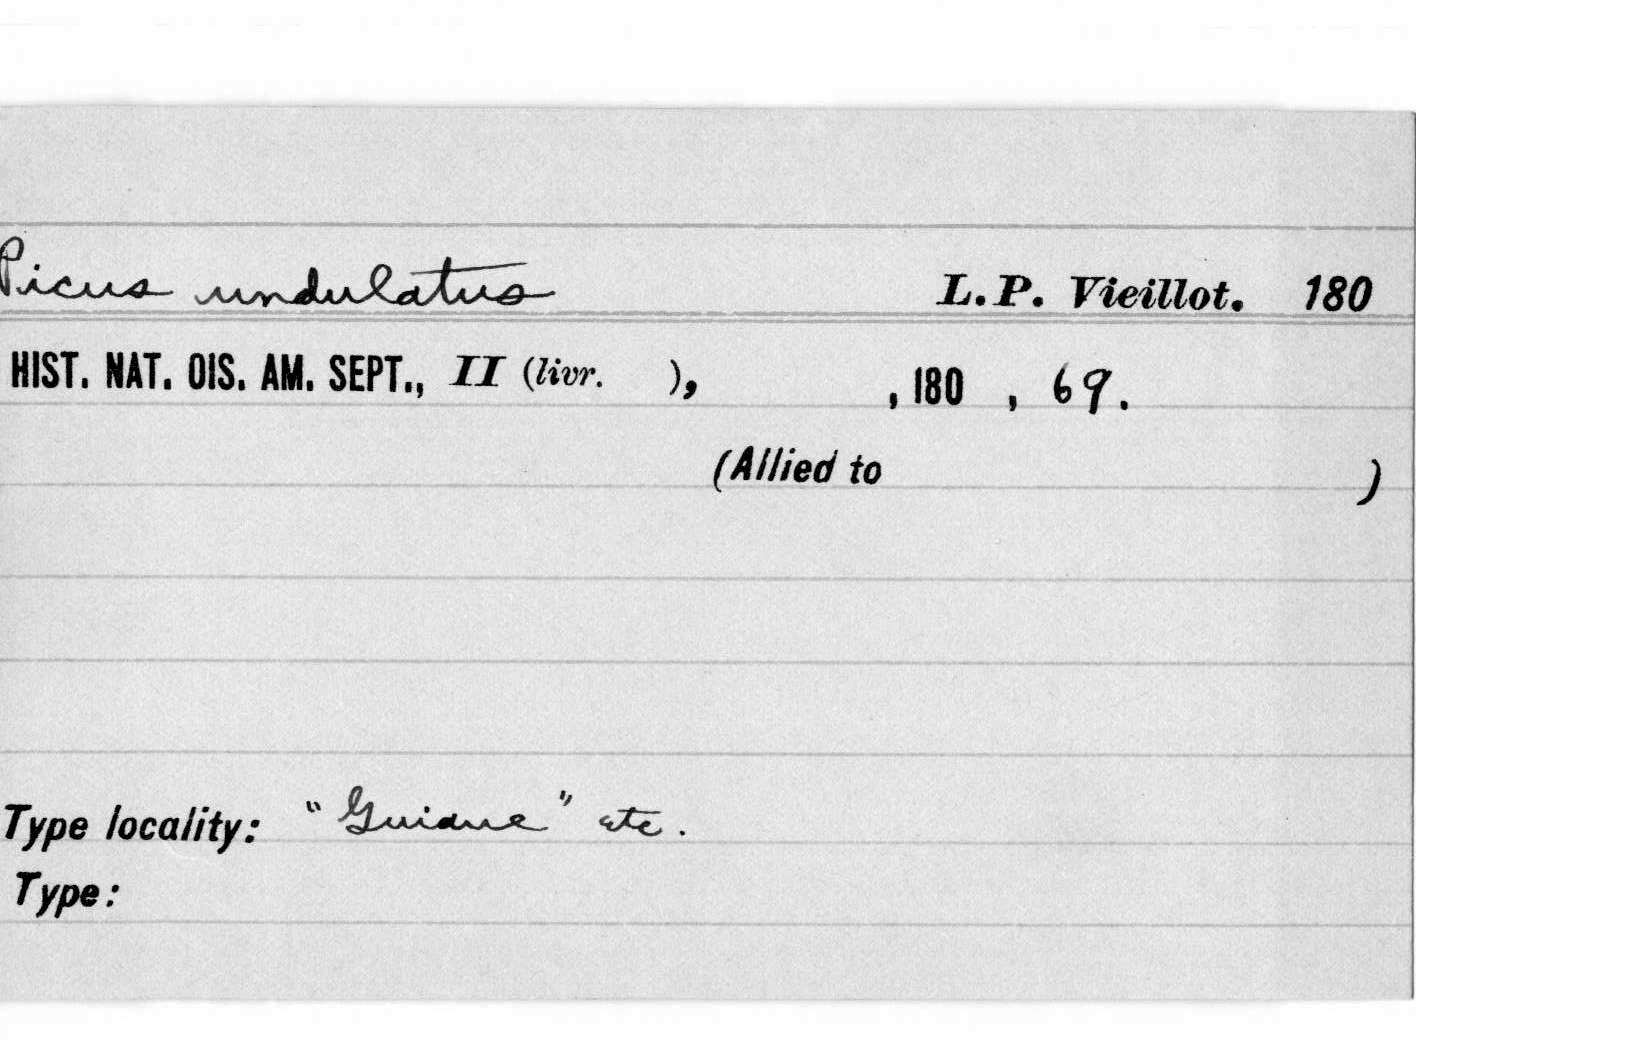 Picus undulatus L. P. Vieillot. 180
HIST. NAT. OIS. AM. SEPT., II (livr. ), , 180 , 69.
(Allied to )
Type locality: "Guiane" etc.
Type: